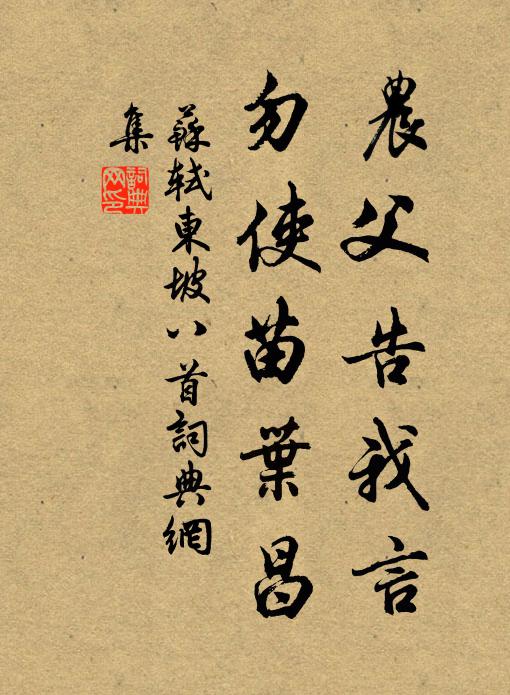 農父告我言
勿使苗葉昌
蘇軾東坡八首詞典網
集
詞典網印